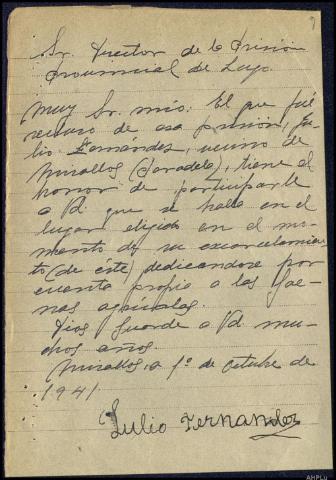 9
Sr. Director de la Prisión
Provincial de Lugo.
Muy Sr. mío: El que fué
recluso de esa prisión, Ju-
lio Fernández, vecino de
Mirallos (Paradela), tiene el
honor de participarle
a Vd. que se halla en el
lugar elijido en el mo-
mento de su excarcelamien-
to (de éste) dedicandose por
cuenta propia a las fae-
nas agrícolas.
Dios guarde a Vd mu-
chos años.
Mirallos, a 1º de octubre de
1941
Julio Fernandez
AHPLU